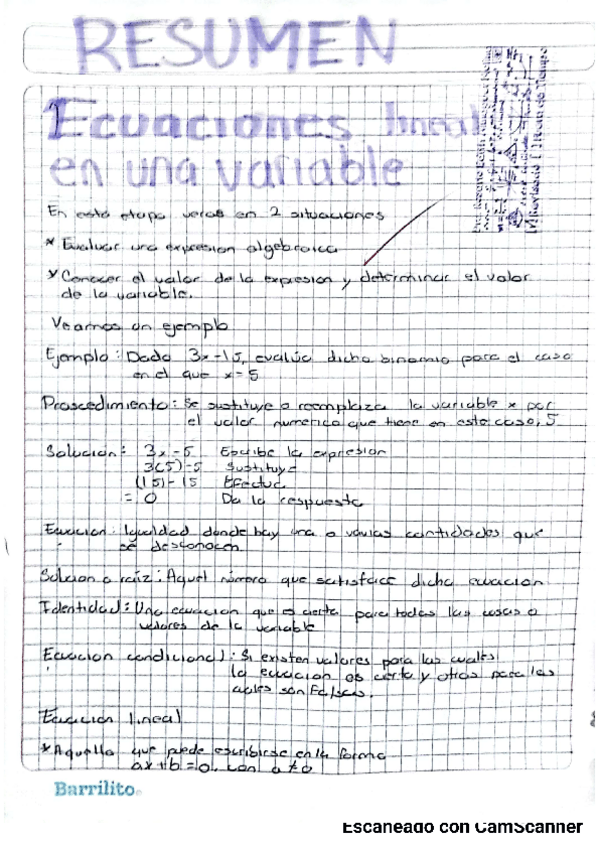 RESUMEN
Ecuaciones lineal
en una variable
En esta etapa veras en 2 situaciones
* Evaluar una expresion algebraica
* Conocer el valor de la expresion y determinar el valor
de la variable.
Veamos un ejemplo
Ejemplo: Dado 3x-15, evalúa dicho binomio para el caso
en el que x=5
Proscedimiento: Se sustituye o reemplaza la variable x por
el valor numerico que tiene en este caso, 5
Solución: 3x-5 Escribe la expresion
3(5)-5 Sustituye
(15)-15 Efectua
= 0 Da la respuesta
Ecuacion: Igualdad donde hay una o varias cantidades que
se desconocen
Solucion o raíz: Aquel número que satisface dicha ecuacion
Identidad: Una ecuacion que es cierta para todas las cosas o
valores de la variable
Ecuacion condicional: Si existen valores para los cuales
la ecuacion es cierta y otros para las
cuales son Falsas.
Ecuacion lineal
*Aquella que puede escribirse en la forma
ax+b=0, con a≠0
Barrilito
Escaneado con CamScanner